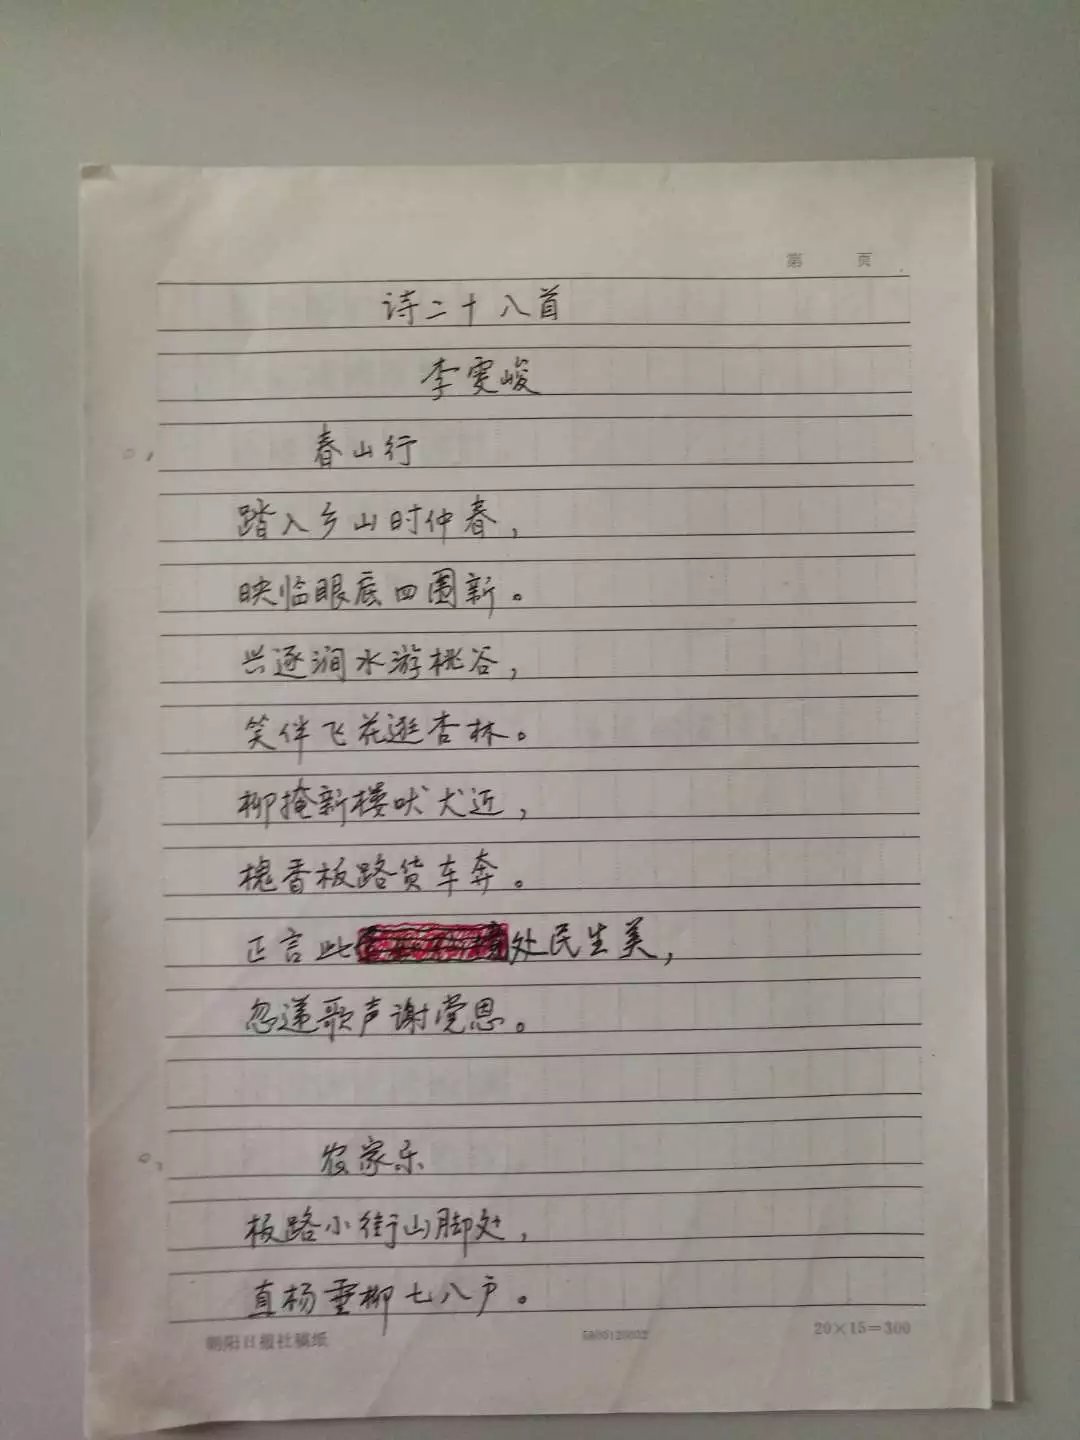 第 页
诗二十八首
李雯峻
春山行
踏入乡山时仲春，
映临眼底四围新。
兴逐涧水游桃谷，
笑伴飞花逛杏林。
柳掩新楼吠犬近，
槐香板路货车奔。
正言此处民生美，
忽递歌声谢党恩。
农家乐
板路小街山脚处，
直杨垂柳七八户。
朝阳日报社稿纸
20×15=300